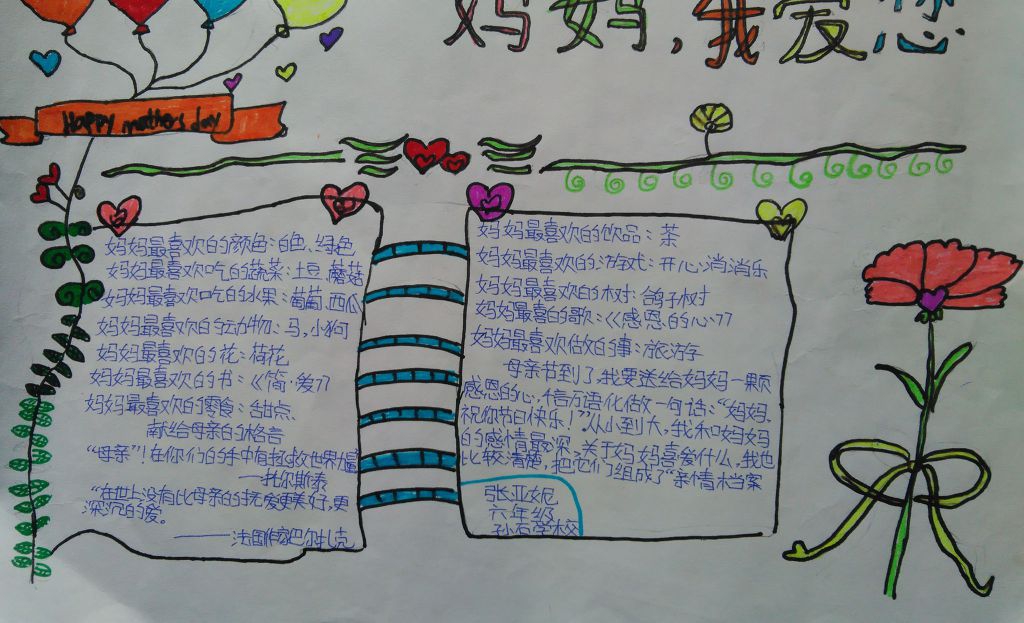 妈妈,我爱您
Happy mothers day
妈妈最喜欢的颜色:白色、绿色
妈妈最喜欢吃的蔬菜:土豆,蘑菇
妈妈最喜欢吃的水果:葡萄,西瓜
妈妈最喜欢的动物:马,小狗
妈妈最喜欢的花:荷花
妈妈最喜欢的书:《简·爱》
妈妈最喜欢的零食:甜点、
献给母亲的格言
“母亲”!在你们的手中有拯救世界
——托尔斯泰
“在世上没有比母亲的抚爱更美好,更
深沉的爱。
——法国作家巴尔扎克
妈妈最喜欢的饮品:茶
妈妈最喜欢的游戏:开心消消乐
妈妈最喜欢的树:鸽子树
妈妈最喜的歌:《感恩的心》
妈妈最喜欢做的事:旅游
母亲节到了,我要送给妈妈一颗
感恩的心,千言万语化做一句话:“妈妈,
祝你节日快乐!”从小到大,我和妈妈
的感情最深,关于妈妈喜爱什么,我也
比较清楚,把它们组成了“亲情档案
张亚妮
六年级
孙石学校